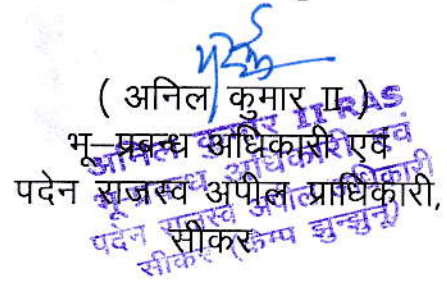 ( अनिल कुमार II )
भू–प्रबन्ध अधिकारी एवं
पदेन राजस्व अपील प्राधिकारी,
सीकर
अनिल कुमार II RAS
भू प्रबन्ध अधिकारी एवं
पदेन राजस्व अपील अधिकारी
सीकर (कैम्प झुन्झुनू)